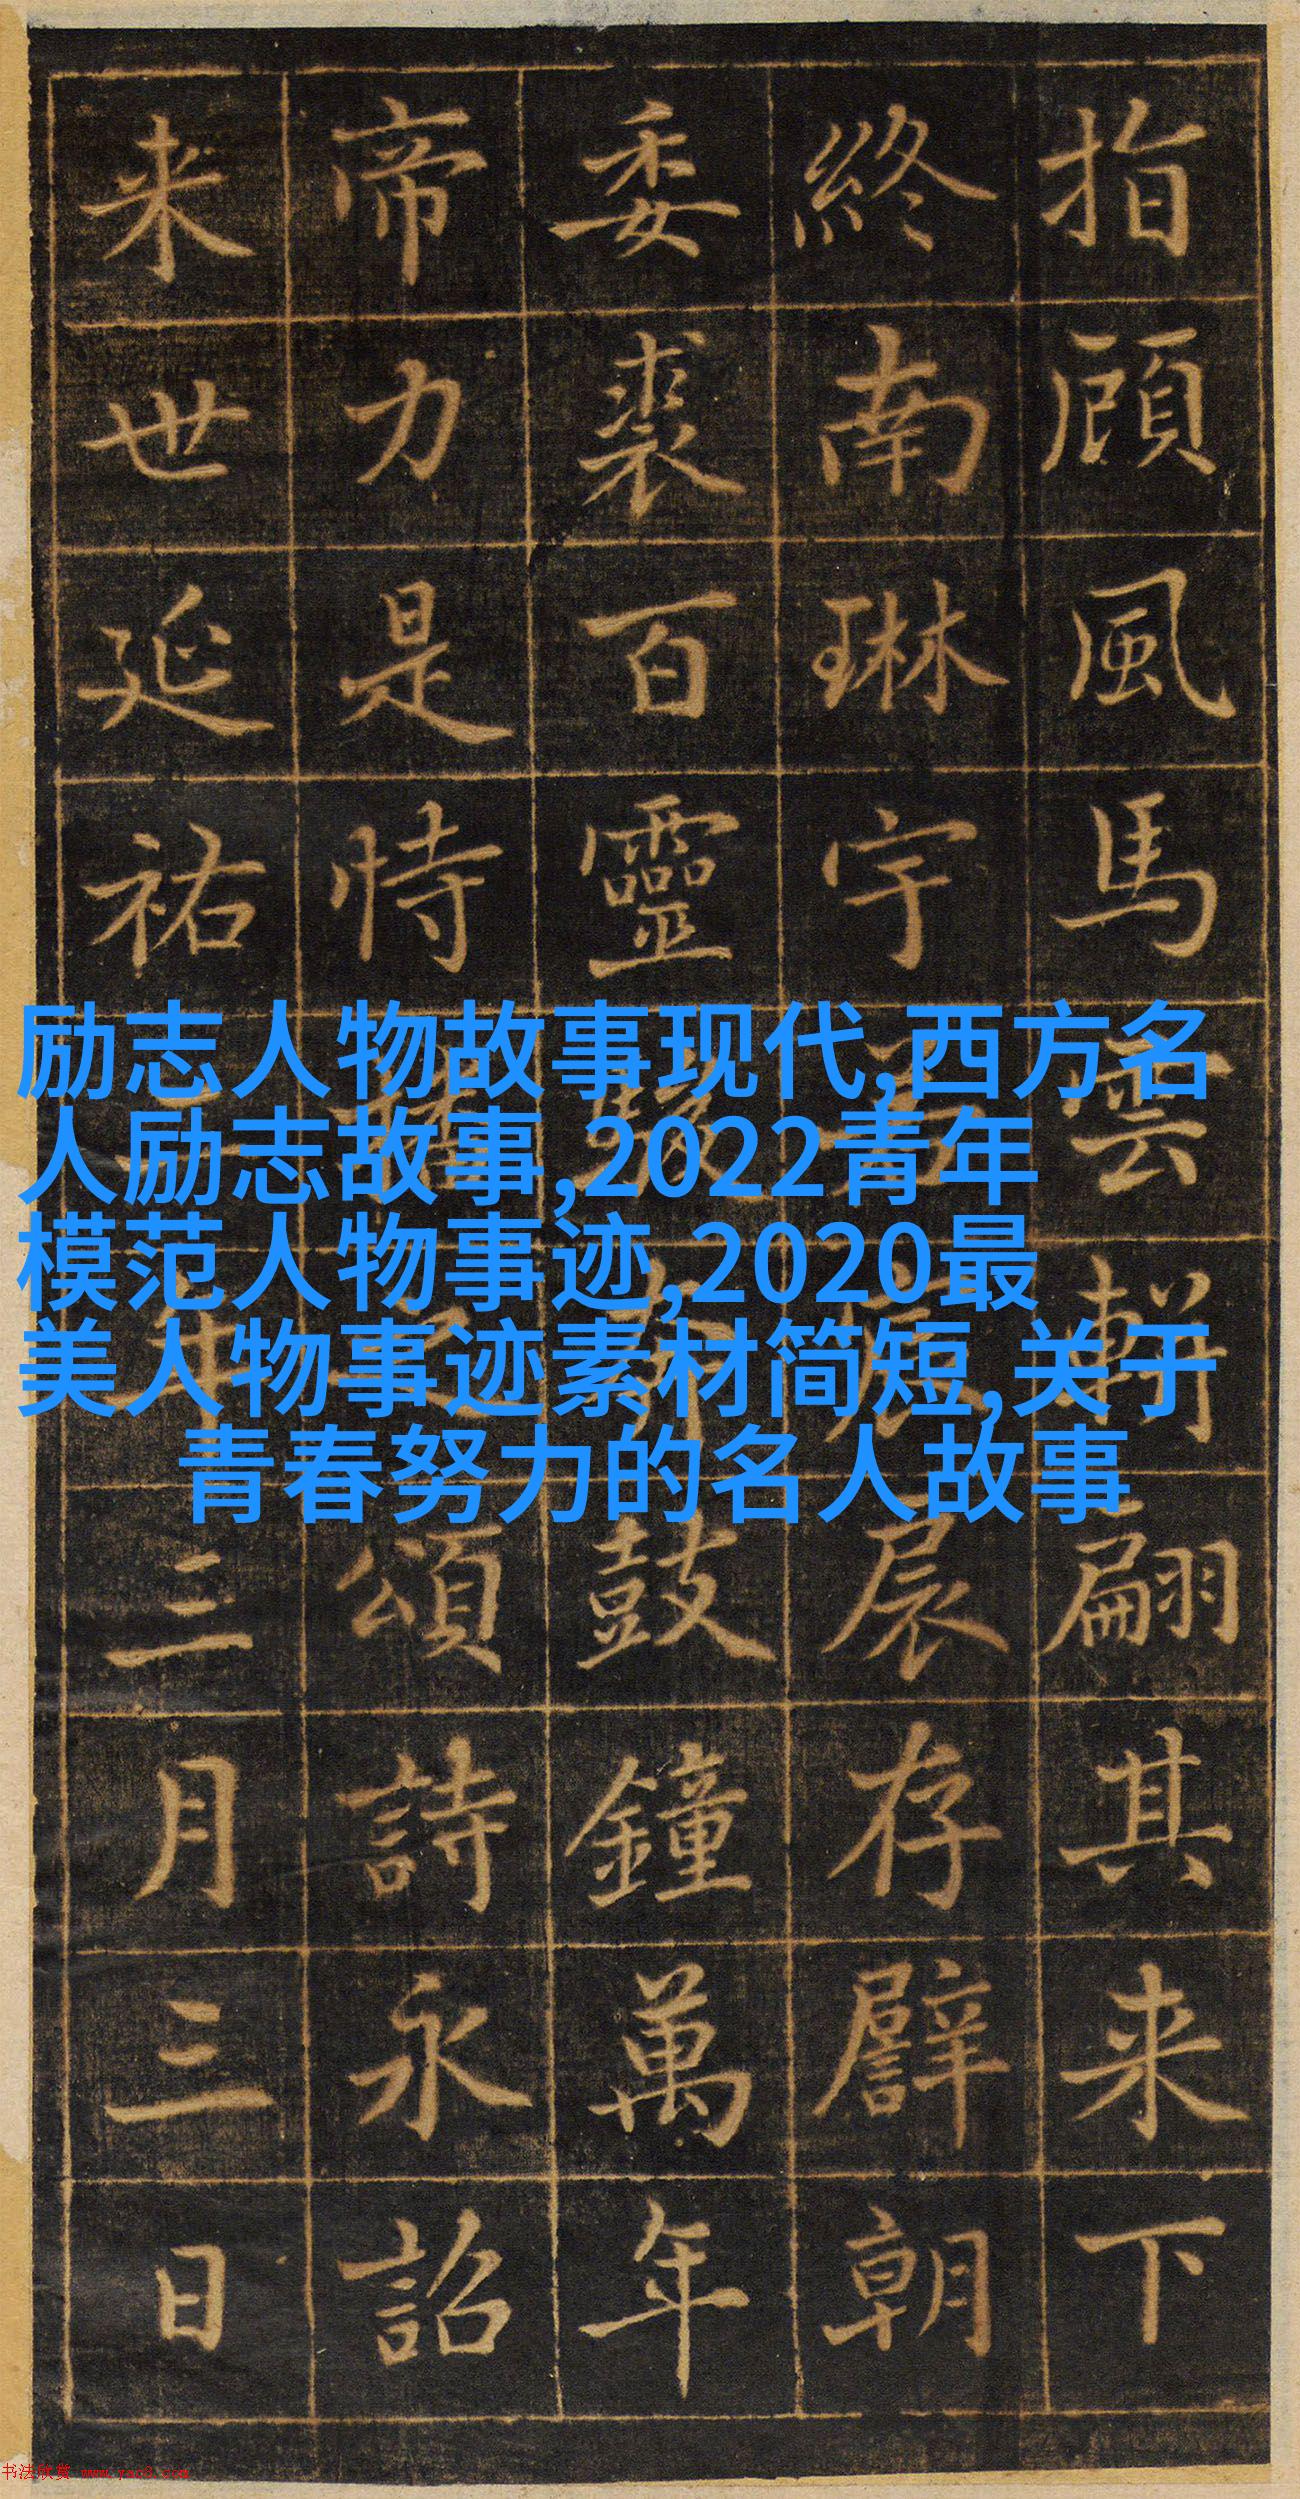 指顧風馬雲軿翩其来下
終南琳宇扆存譬朝
委裘百靈鼓鐘萬年
帝力是恃頌詩永詔
来世延祐年三月三日
励志人物故事现代,西方名
人励志故事,2022青年
模范人物事迹,2020最
美人物事迹素材简短,关于
青春努力的名人故事
书法欣赏 www.yac8.com